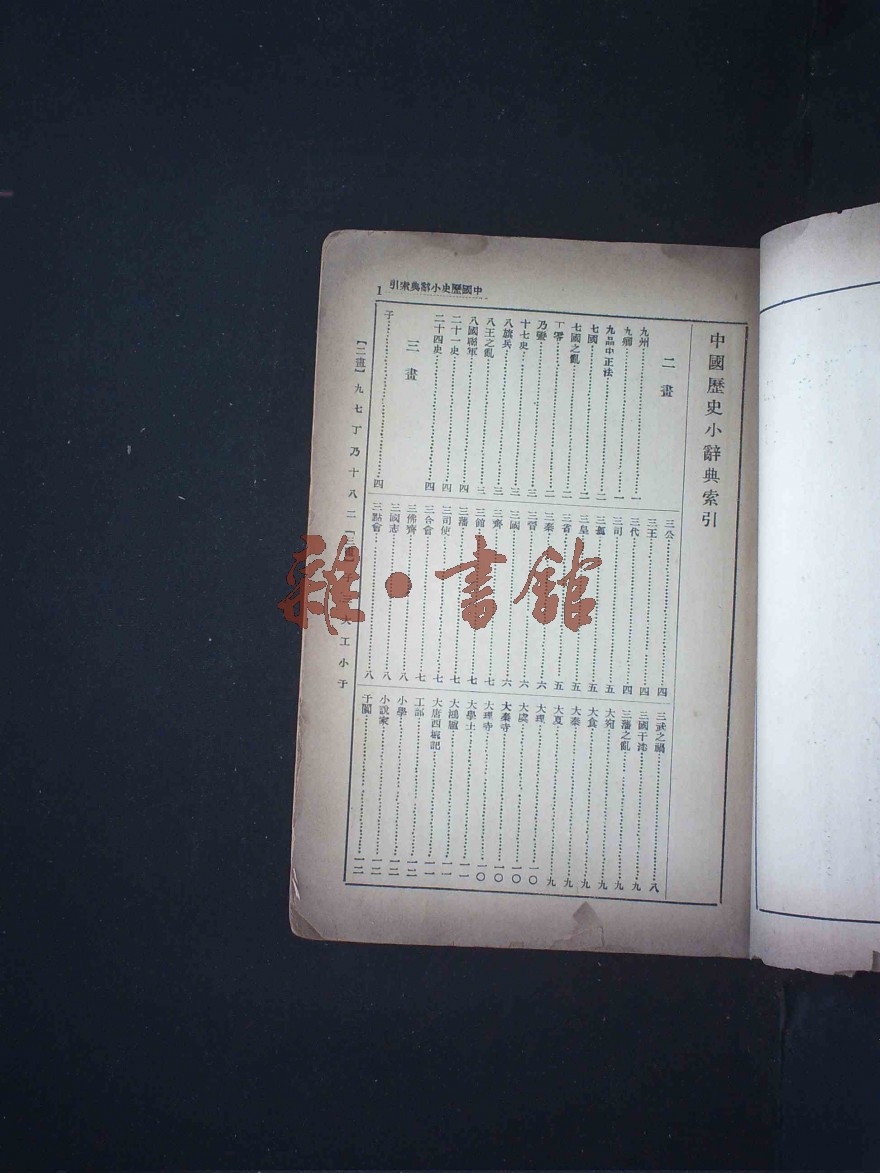 中國歷史小辭典索引
1
中國歷史小辭典索引
二畫
九州…………一
九卿…………一
九品中正法…………二
七國…………二
七國之亂…………二
丁零…………二
乃蠻…………三
十七史…………三
八旗兵…………三
八王之亂…………三
八國聯軍…………四
二十一史…………四
二十四史…………四
三畫
子…………四
三公…………四
三王…………四
三代…………四
三司…………五
三孤…………五
三皇…………五
三省…………五
三秦…………六
三晉…………六
三國…………六
三齊…………七
三館…………七
三藩…………七
三司使…………七
三合會…………七
三佛齊…………八
三國志…………八
三點會…………八
三武之禍…………八
三國干涉…………九
三藩之亂…………九
大宛…………九
大食…………九
大秦…………九
大夏…………九
大理…………一〇
大虞…………一〇
大秦寺…………一〇
大理寺…………一〇
大學士…………一一
大鴻臚…………一一
大唐西域記…………一一
工部…………一二
小學…………一二
小說家…………一二
于闐…………一二
【二畫】九七丁乃十八二【三 大工小于
雜·書館